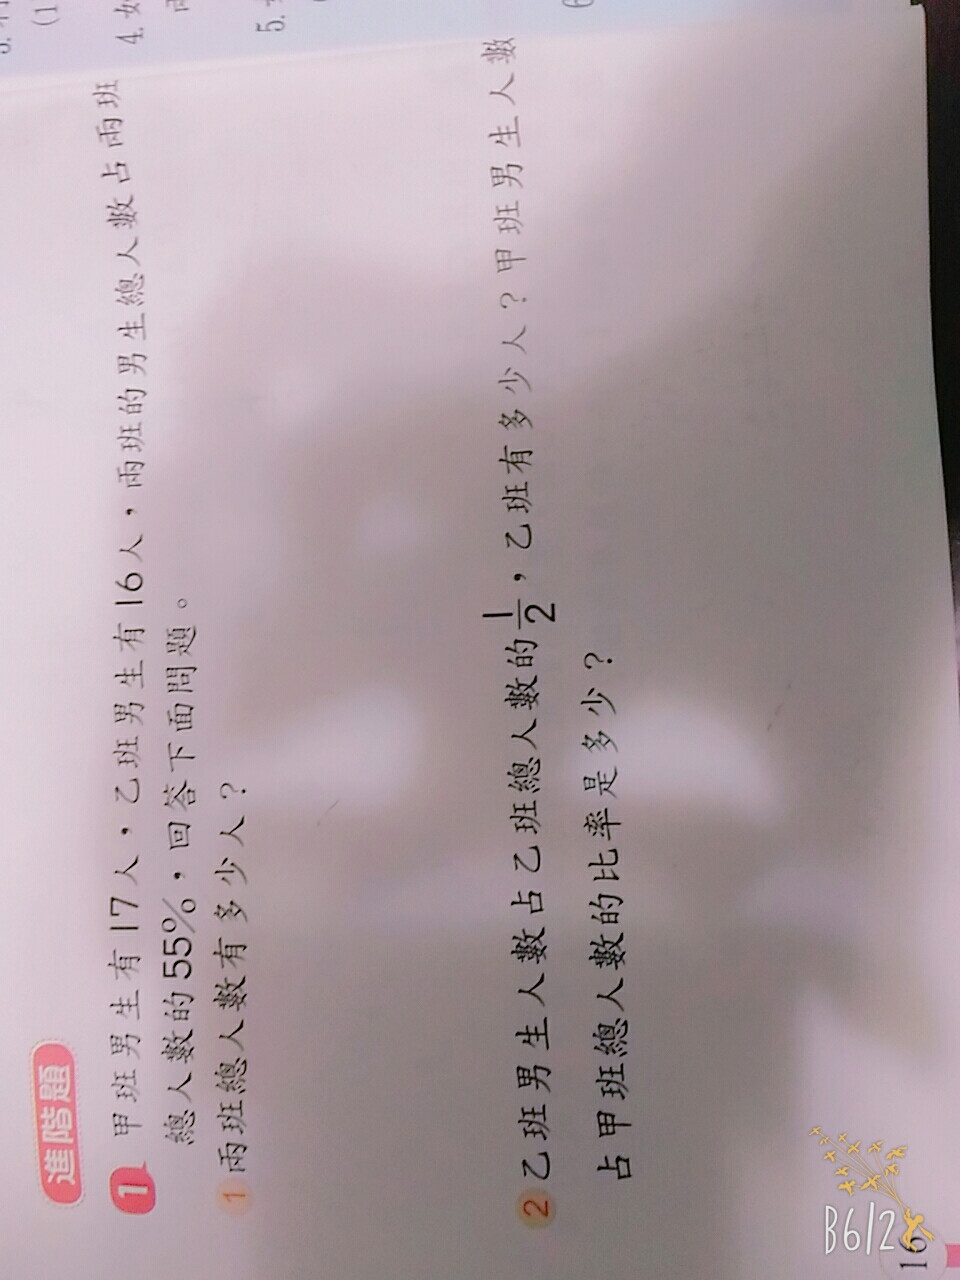 4.
5.
進階題
1 甲班男生有17人，乙班男生有16人，兩班的男生總人數占兩班
總人數的55%，回答下面問題。
1 兩班總人數有多少人？
2 乙班男生人數占乙班總人數的1/2，乙班有多少人？甲班男生人數
占甲班總人數的比率是多少？
B612